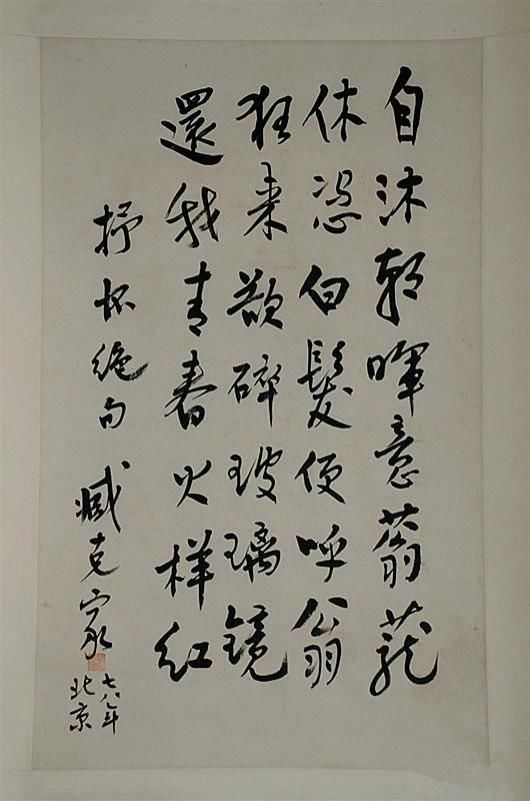 自沐朝暉意蓊蘢
休恐白髮便呼翁
狂来欲碎玻璃镜
還我青春火样红
抒怀绝句
臧克家
七八年
北京